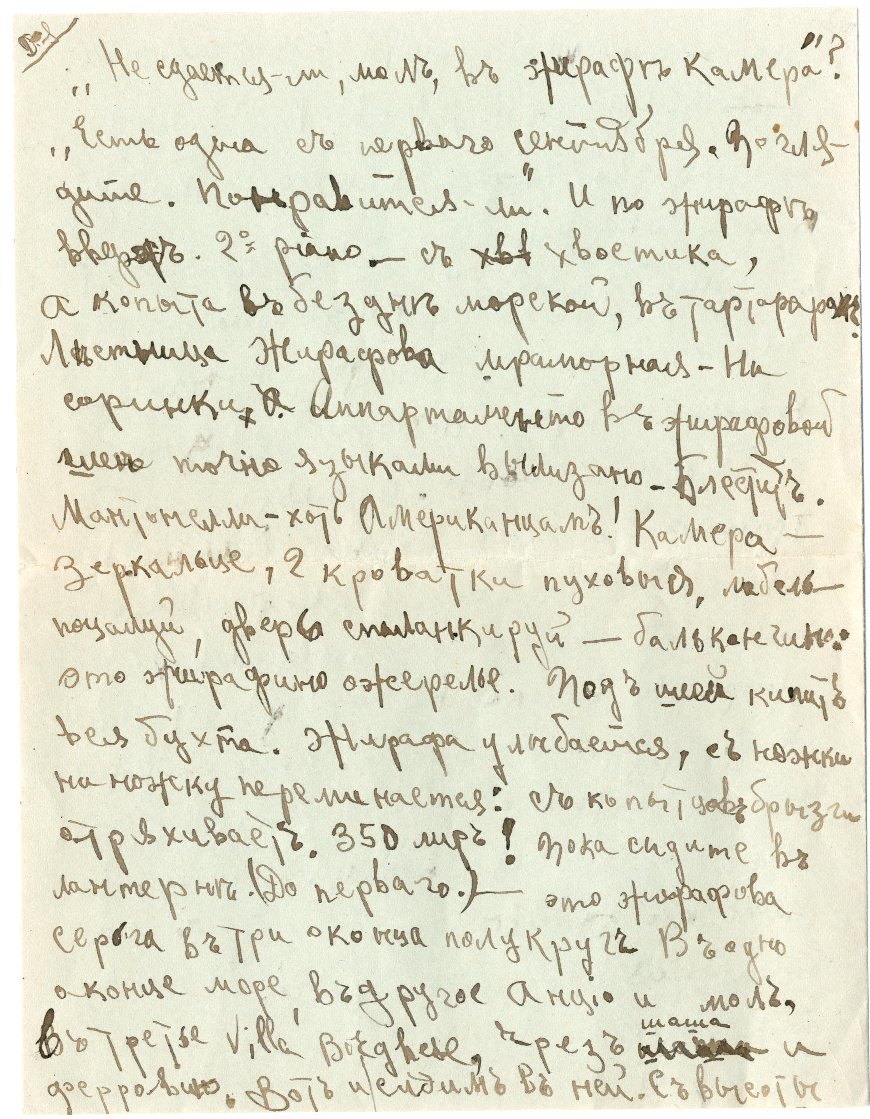 „Не сдается-ли, молъ, въ жирафѣ камера"?
„Есть одна съ перваго сентября. Погля-
дите. Понравится-ли". И по жирафѣ
вверхъ. 2º piano — съ хвостика,
а копыта въ безднѣ морской, въ тартарарахъ.
Лѣстница Жирафова мраморная - Ни
соринки, а Аппартаменто въ жирафовой
шеѣ точно языками вылизано - Блеститъ.
Мантонелли - хоть Американцамъ! Камера —
Зеркальце, 2 кроватки пуховыя, мебель -
поцалуй, дверь спиланкируй — балькончинъ:
это жирафино ожерелье. Подъ шеей кипитъ
вся бухта. Жирафа улыбается, съ ножки
на ножку переминается: съ копытцевъ брызги
отряхиваетъ. 350 лиръ! Пока сидите въ
лантернѣ. (До перваго.) — это жирафова
серьга въ три оконца полукругъ Въ одно
оконце море, въ другое Анціо и молъ,
въ третье Villa Borghese, черезъ шата и
ферровію. Вотъ и сидимъ въ ней. Съ высоты